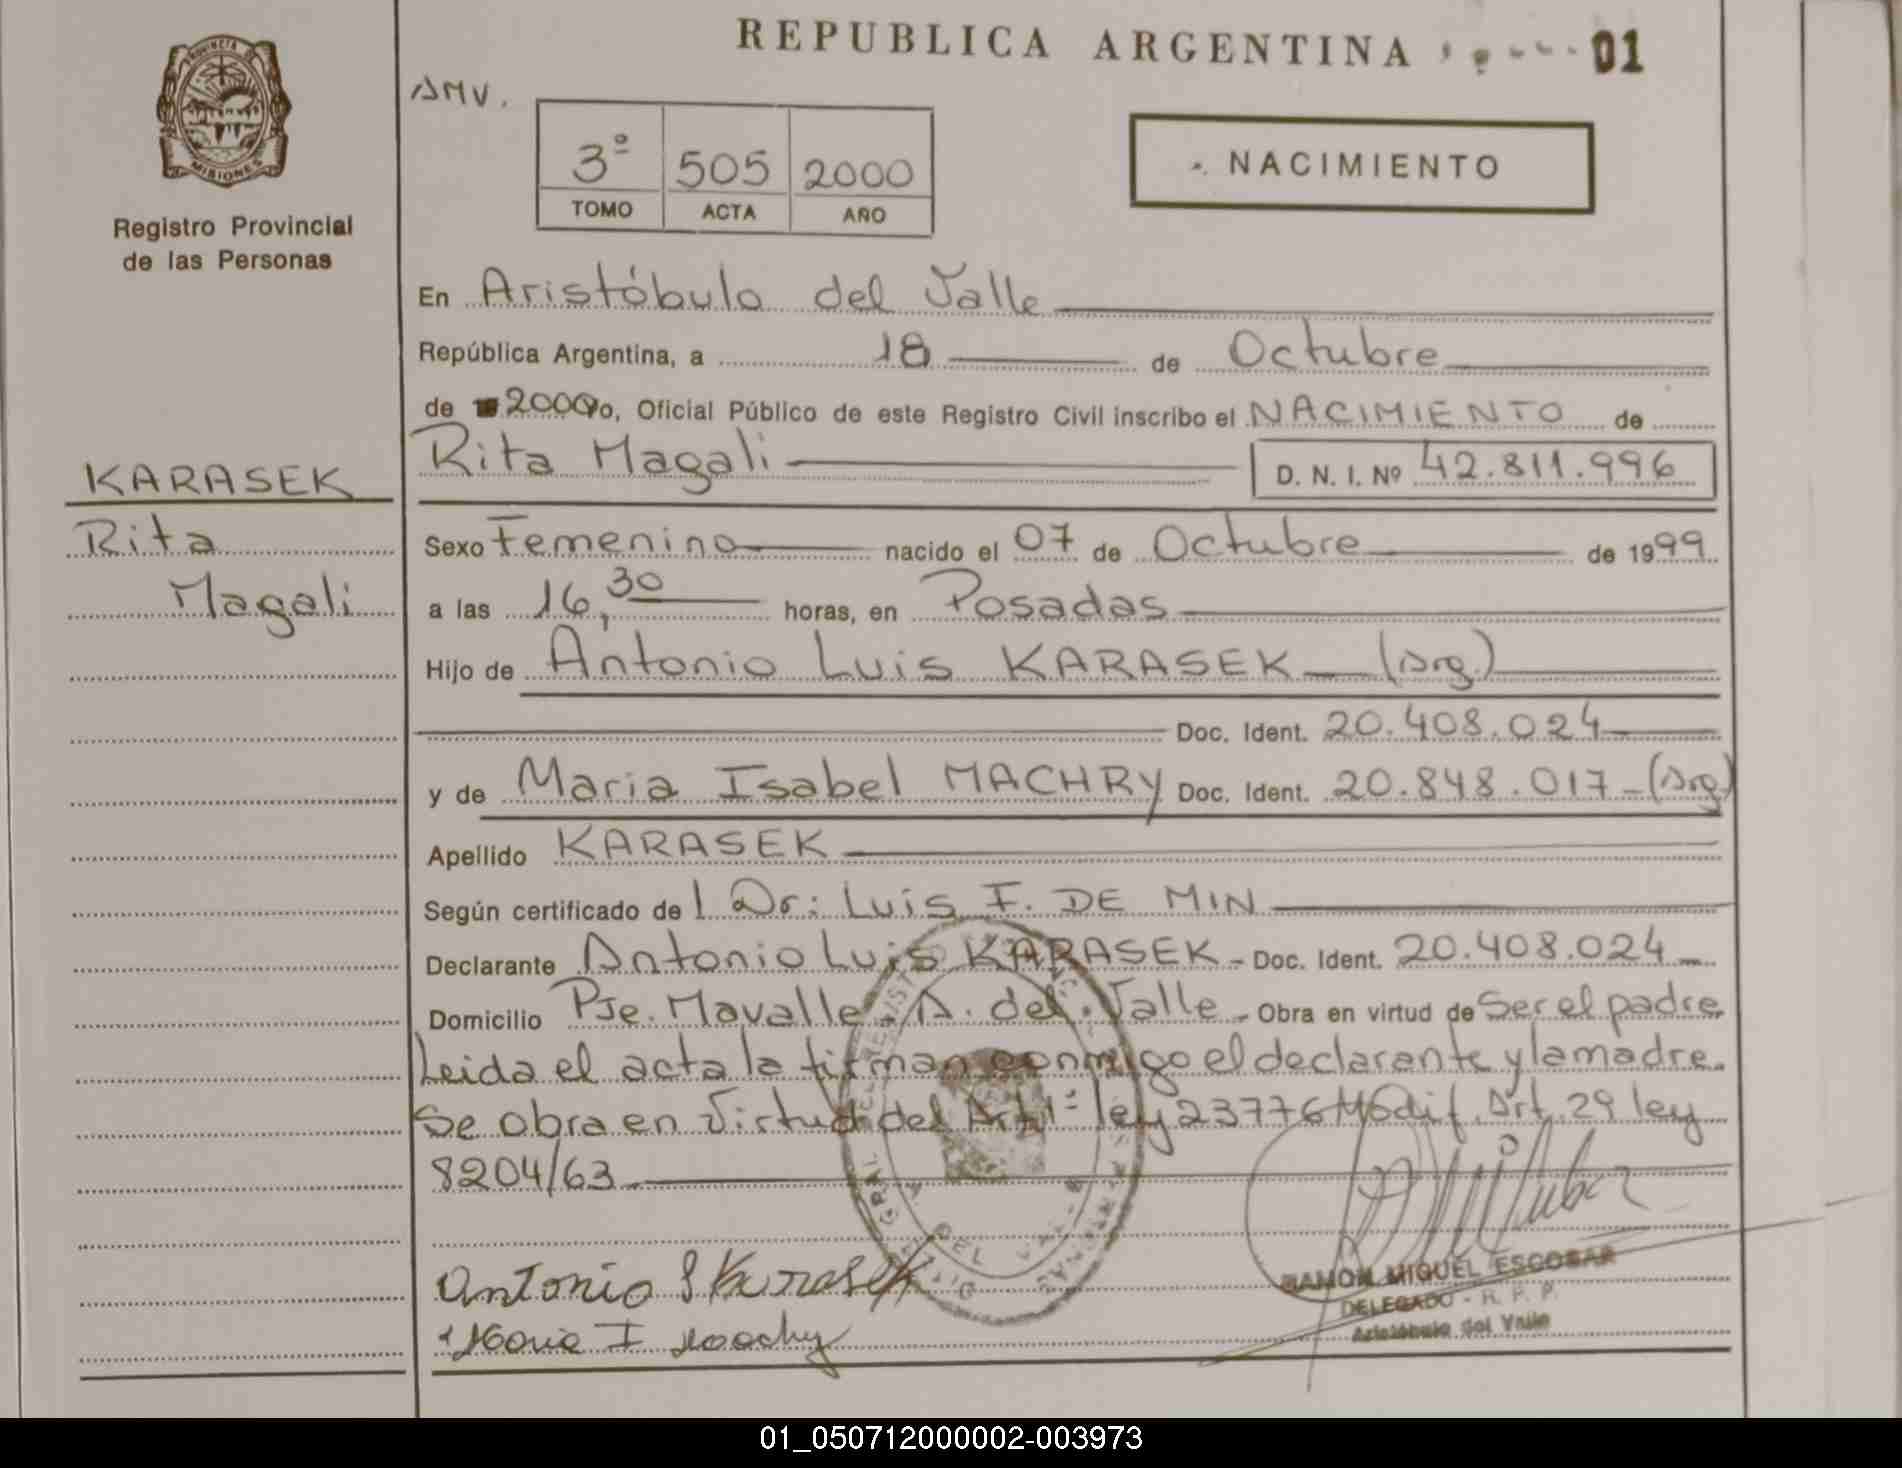 REPUBLICA ARGENTINA
01
PROVINCIA DE
MISIONES
Registro Provincial
de las Personas
AMV.
3º 505 2000
TOMO ACTA AÑO
NACIMIENTO
En Aristóbulo del Valle
República Argentina, a 18 de Octubre
de 2000 yo, Oficial Público de este Registro Civil inscribo el NACIMIENTO de
KARASEK
Rita Magali D. N. I. Nº 42.811.996
Rita
Magali
Sexo Femenino nacido el 07 de Octubre de 1999
a las 16,30 horas, en Posadas
Hijo de Antonio Luis KARASEK (Arg.)
Doc. Ident. 20.408.024
y de Maria Isabel MACHRY Doc. Ident. 20.848.017-(Arg.)
Apellido KARASEK
Según certificado de l Dr: Luis F. DE MIN
Declarante Antonio Luis KARASEK - Doc. Ident. 20.408.024
Domicilio Pje. Mavalle - A. del Valle - Obra en virtud de Ser el padre
Leida el acta la firman conmigo el declarante y la madre.
Se obra en Virtud del Art 1º ley 23776 Modif. Art. 29 ley
8204/63.
Antonio L Karasek
Maria I Machry
RAMON MIGUEL ESCOBAR
DELEGADO - R. P. P.
Aristóbulo del Valle
01_050712000002-003973